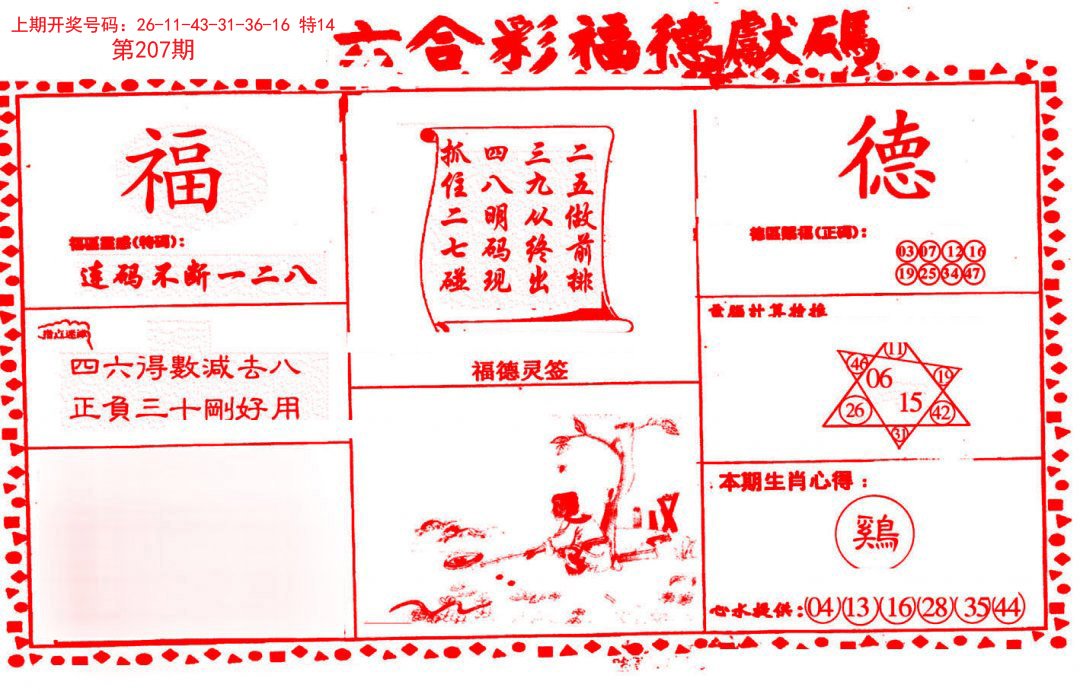 上期开奖号码: 26-11-43-31-36-16 特14
第207期
六合彩福德獻碼
福
福區靈感(特碼):
連码不断一二八
指点迷津
四六得數減去八
正負三十剛好用
二五做前排
三九从终出
四八明码现
抓住二七碰
福德灵签
德
德區賜福(正碼):
03 07 12 16
19 25 34 47
電腦計算給推
11
46 06 19
26 15 42
31
本期生肖心得:
鷄
心水提供:04 13 16 28 35 44